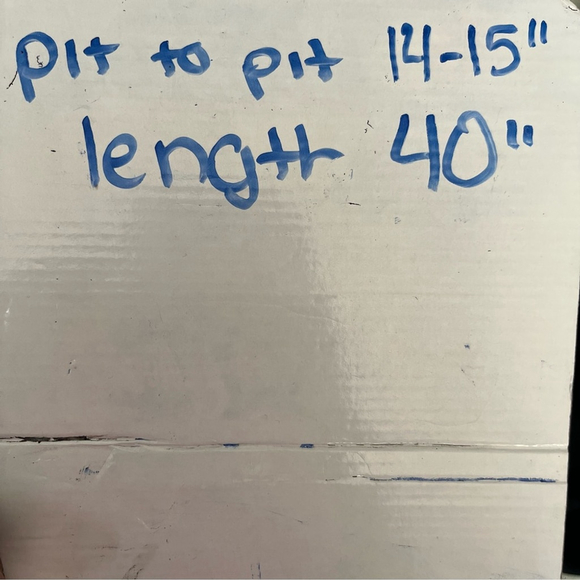 pit to pit 14-15"
length 40"